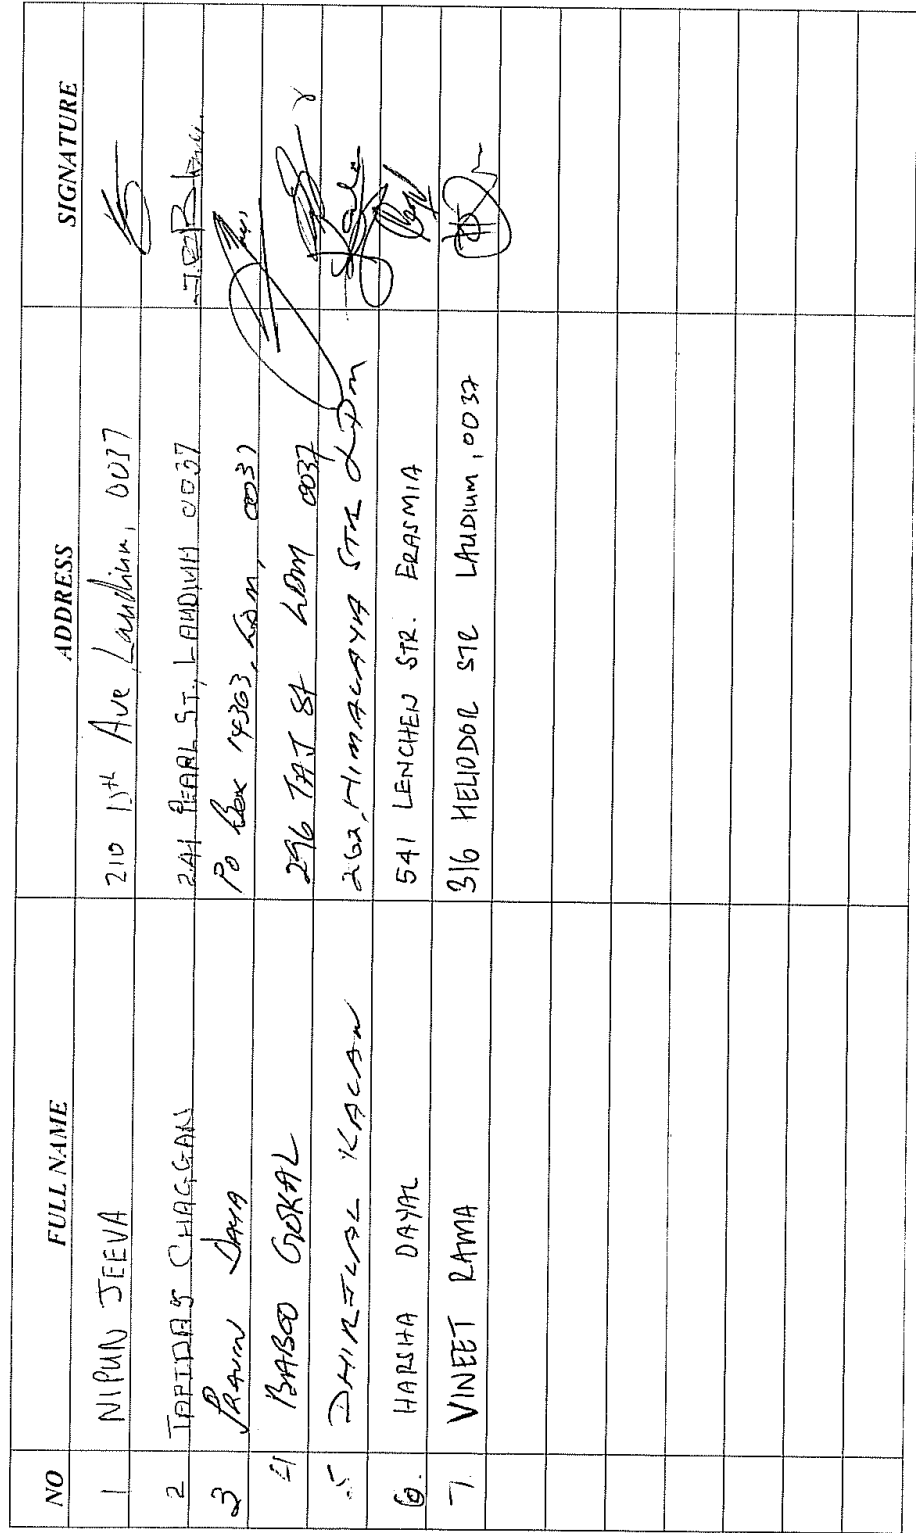 NO FULL NAME ADDRESS SIGNATURE
1 NIPUN JEEVA 210 11th Ave Laudium, 0037
2 TAPIDAS CHAGGAN 241 PEARL ST., LAUDIUM 0037
3 PRAVIN DAYA PO Box 14363, LDM, 0037
4 BABOO GOKAL 296 TAJ St LDM 0037
5 DHIRJLAL KALAN 262, HIMALAYA STR LDM
6. HARSHA DAYAL 541 LENCHEN STR. ERASMIA
7. VINEET RAMA 316 HELIODOR STR LAUDIUM, 0037